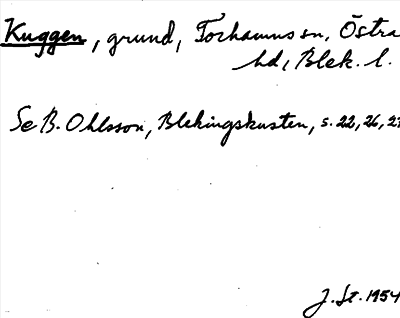 Kuggen, grund, Torhamns sn, Östra
hd, Blek. l.
Se B. Ohlsson, Blekingskusten, s. 22, 26, 27
J. St. 1954